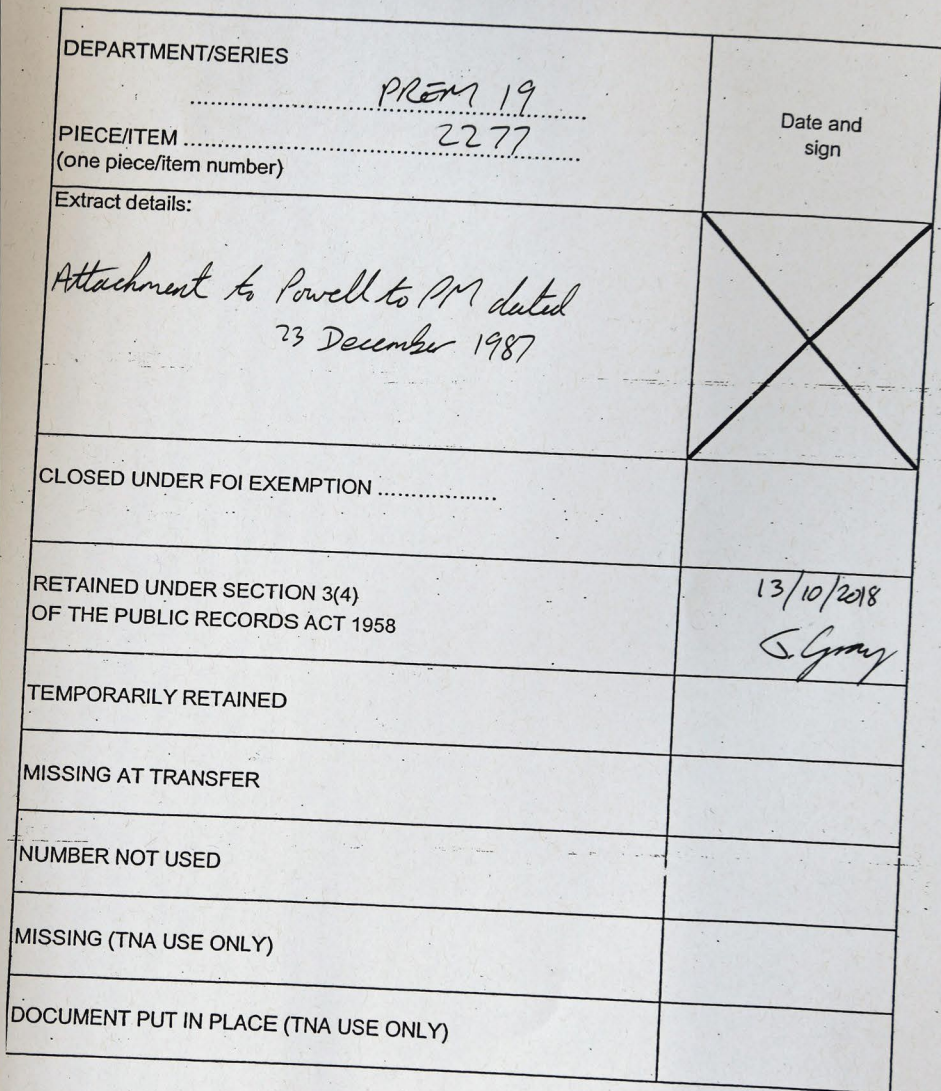 DEPARTMENT/SERIES
PREM 19
PIECE/ITEM 2277
(one piece/item number)
Date and
sign
Extract details:
Attachment to Powell to PM dated
23 December 1987
CLOSED UNDER FOI EXEMPTION ..................
RETAINED UNDER SECTION 3(4)
OF THE PUBLIC RECORDS ACT 1958
13/10/2018
J. Gray
TEMPORARILY RETAINED
MISSING AT TRANSFER
NUMBER NOT USED
MISSING (TNA USE ONLY)
DOCUMENT PUT IN PLACE (TNA USE ONLY)